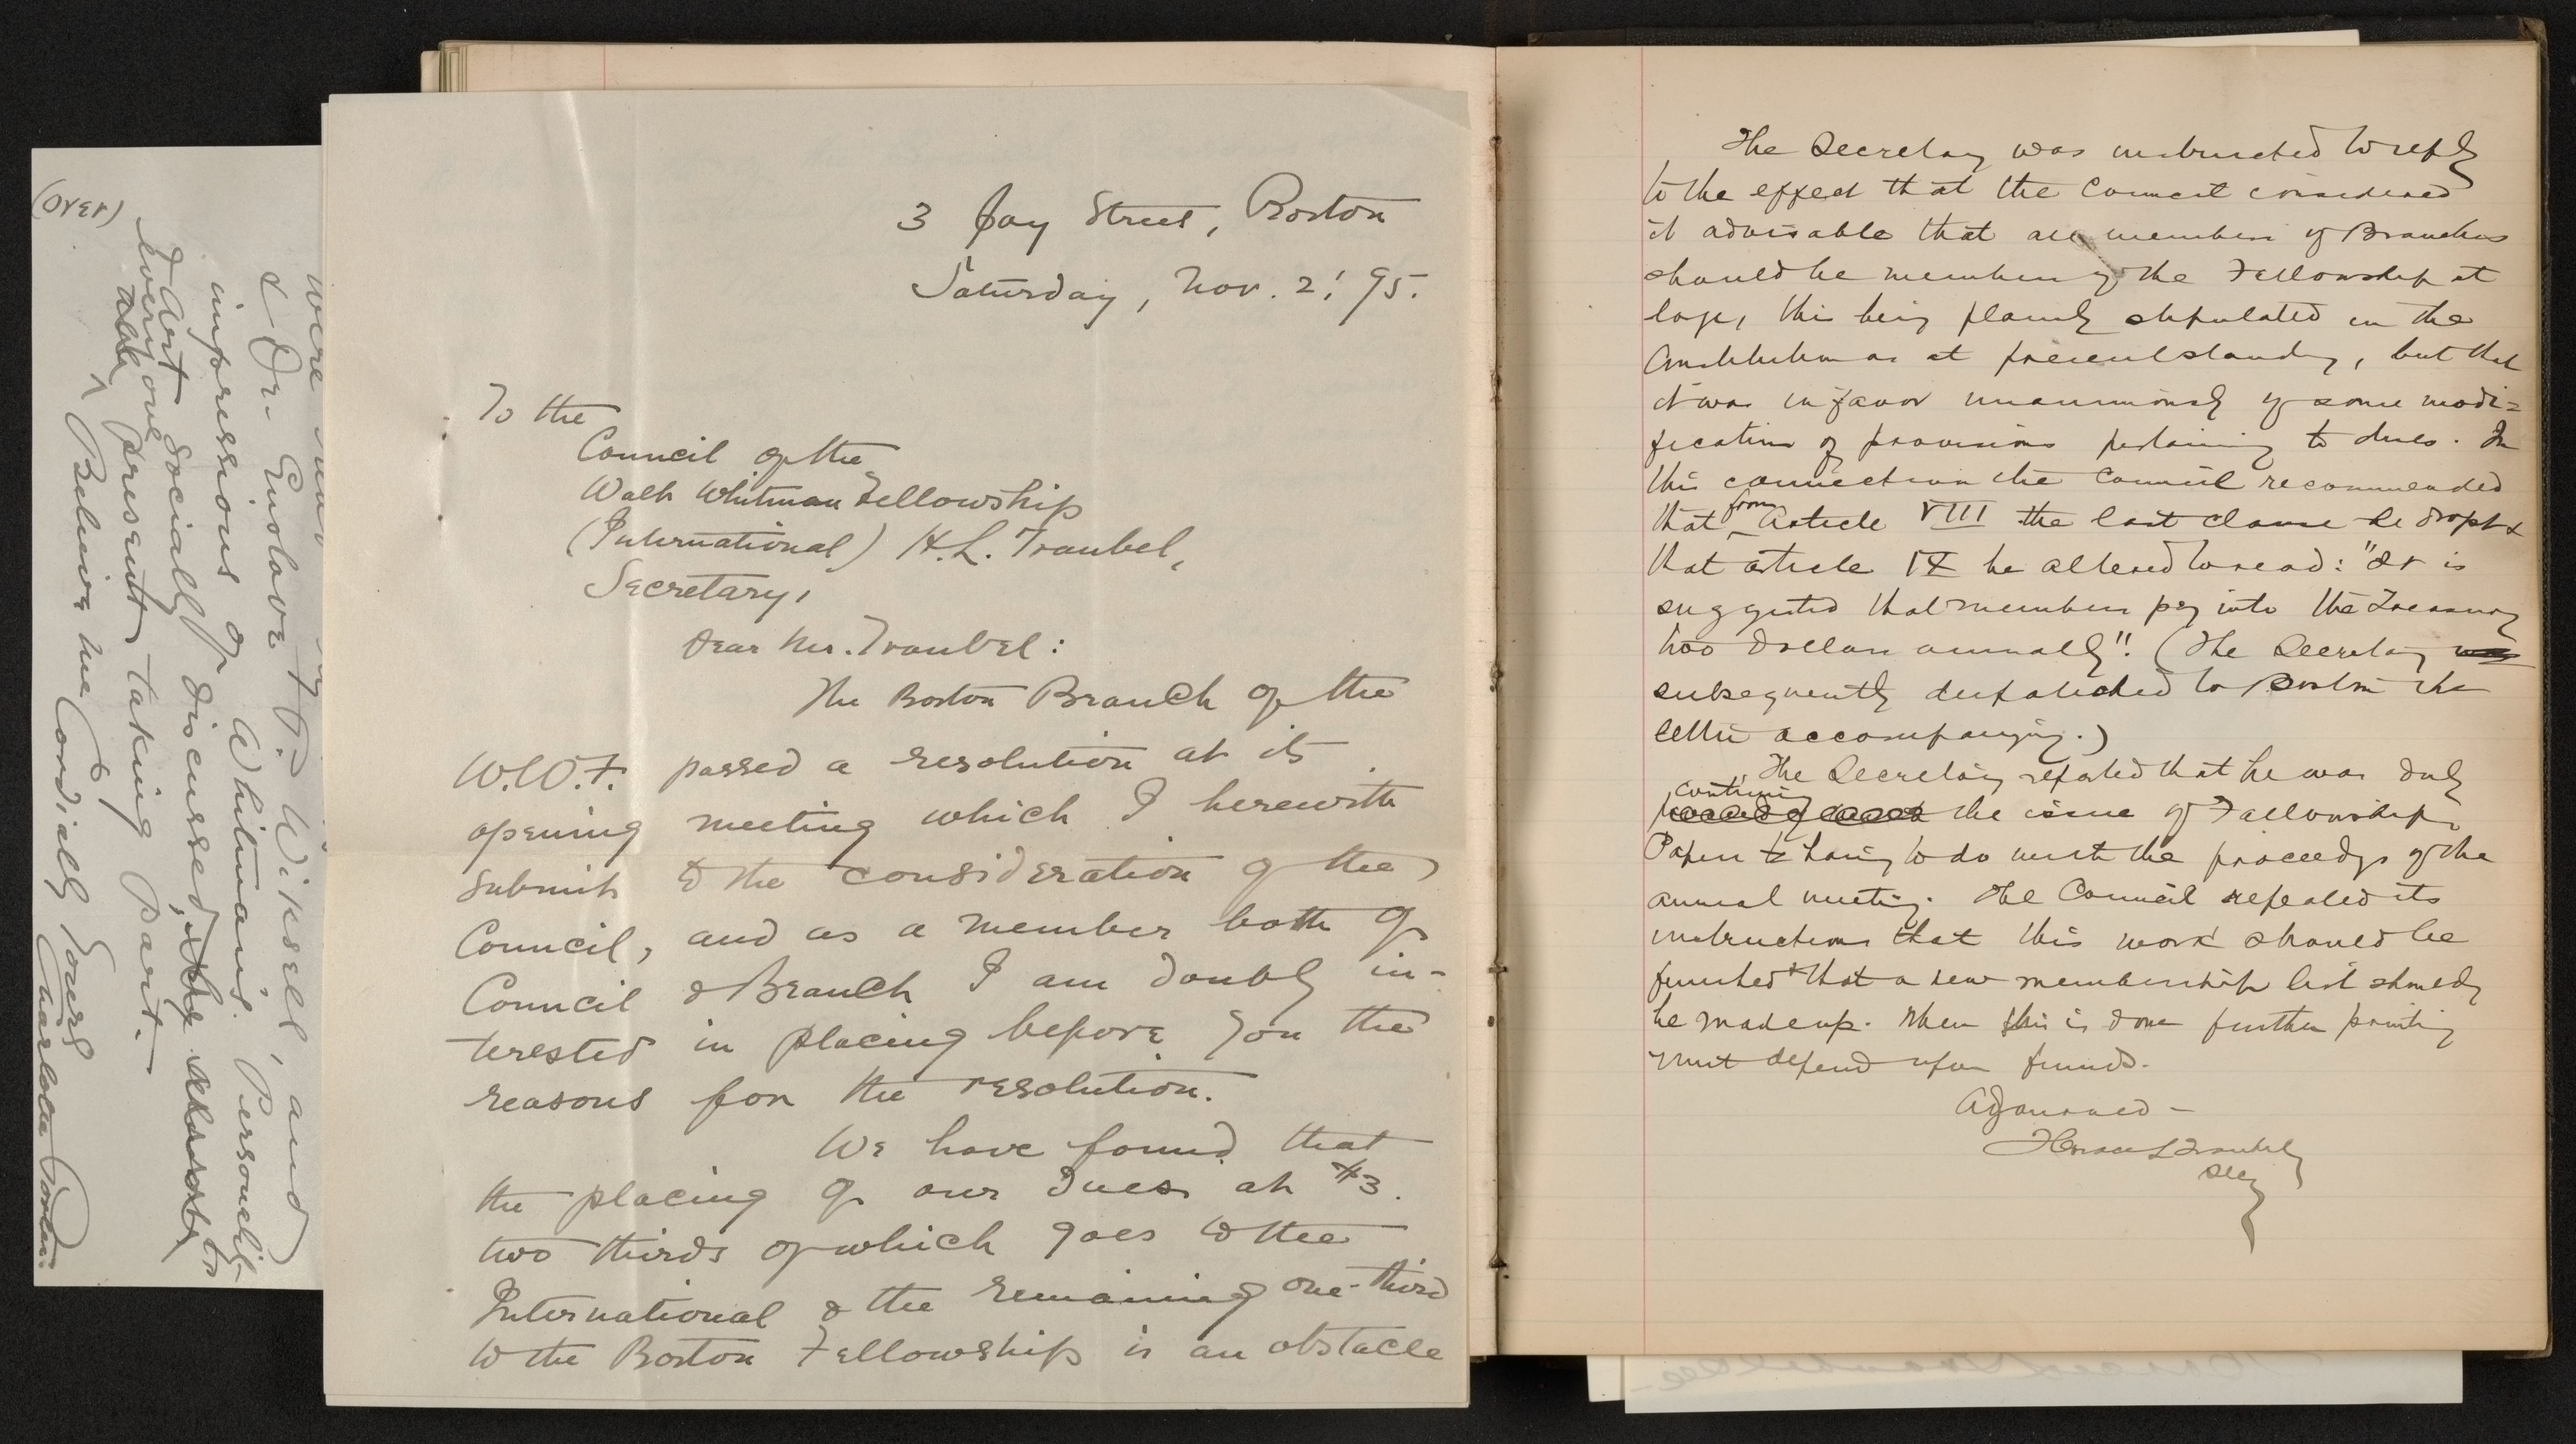 (over)
were
& Dr. Gustave P. Wiksell, and
impressions of Whitman's Personality
Art Socially discussed,
every one
present taking part.
Believe me Cordially Yours
Charlotte Porter.
3 Joy Street, Boston
Saturday, Nov. 2, '95.
To the
Council of the
Walt Whitman Fellowship
(International) H.L. Traubel,
Secretary,
Dear Mr. Traubel:
The Boston Branch of the
W.W.F. passed a resolution at its
opening meeting which I herewith
submit to the consideration of the
Council, and as a member both of
Council & Branch I am doubly in-
terested in placing before you the
reasons for the resolution.
We have found that
the placing of our dues at $3.
two thirds of which goes to the
International & the remaining one-third
to the Boston Fellowship is an obstacle
The Secretary was instructed to reply
to the effect that the Council considered
it advisable that all members of Branches
should be members of the Fellowship at
large, this being plainly stipulated in the
Constitution as at present standing, but that
it was in favor unanimously of some modi=
fication of provisions pertaining to dues. In
this connection the Council recommended
that from Article VIII the last clause be dropt &
that article IX be altered to read: "It is
suggested that members pay into the Treasury
two dollars annually". (The Secretary was
subsequently despatched to Boston the
letter accompanying.)
The Secretary reported that he was duly
continuing
the issue of Fellowship
Papers having to do with the proceedgs of the
annual meeting. The Council repeated its
instructions that this work should be
finished & that a new membership list should
be made up. When this is done further printing
must depend upon funds.
Adjourned –
Horace L Traubel
Secy